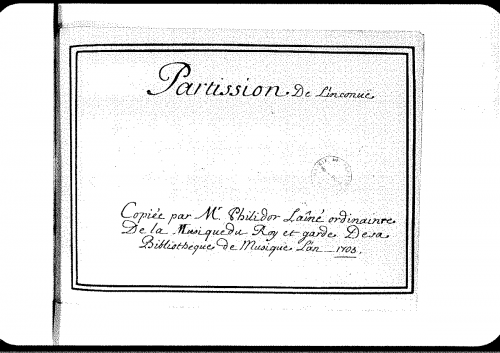 Partission De L'inconuë
Copiée par Mr. Philidor Laîné ordinaire
De la Musique du Roy et garde De sa
Bibliotheque de Musique L'an 1703.